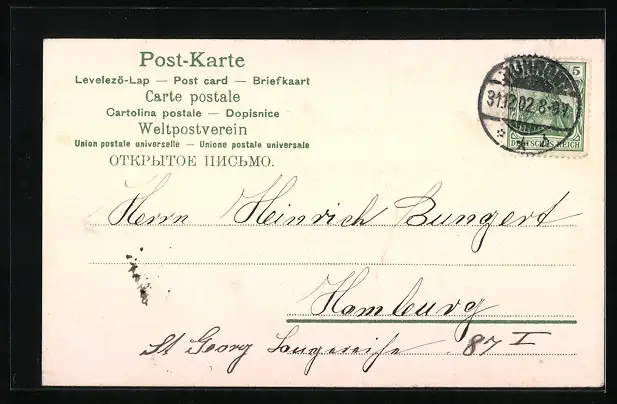 Post-Karte
Levelező-Lap — Post card — Briefkaart
Carte postale
Cartolina postale — Dopisnice
Weltpostverein
Union postale universelle — Unione postale universale
ОТКРЫТОЕ ПИСЬМО.
5
31.12.02. 8-9V
DEUTSCHES REICH
Herrn Heinrich Bungert
Hamburg
St Georg Langereihe 87 I